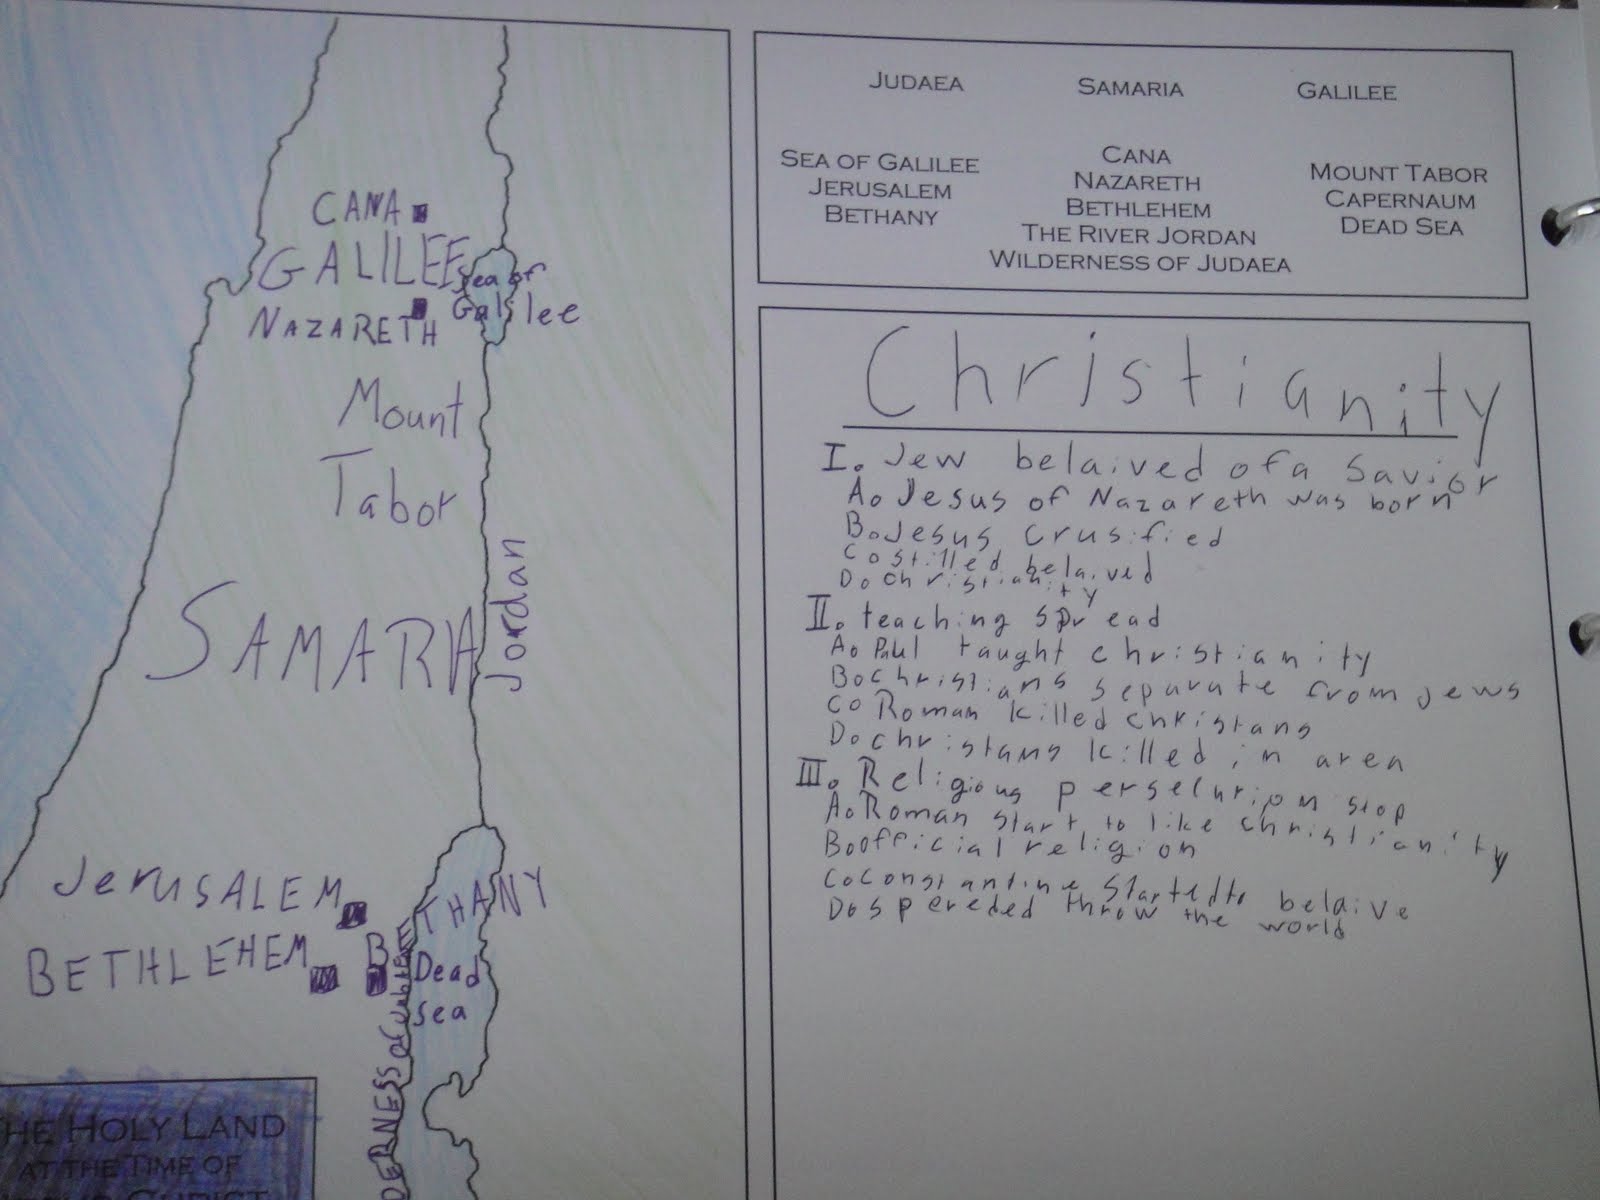 CANA
GALILEE
Sea of
Galilee
NAZARETH
Mount
Tabor
SAMARIA
Jordan
JerusALEM
BETHANY
BETHLEHEM
Dead
sea
DERNESS OF Judaea
HE HOLY LAND
AT THE TIME OF
CHRIST
JUDAEA SAMARIA GALILEE
SEA OF GALILEE
JERUSALEM
BETHANY
CANA
NAZARETH
BETHLEHEM
THE RIVER JORDAN
WILDERNESS OF JUDAEA
MOUNT TABOR
CAPERNAUM
DEAD SEA
Christianity
I. Jew belaived of a Savior
A. Jesus of Nazareth was born
B. Jesus crusified
C. stilled belaived
D. christianity
II. teaching spread
A. Paul taught christianity
B. christians separate from jews
C. Roman killed christans
D. christans killed in area
III. Religious perselution stop
A. Roman start to like christianity
B. official religion
C. Constantine started to belaive
D. spereded throw the world